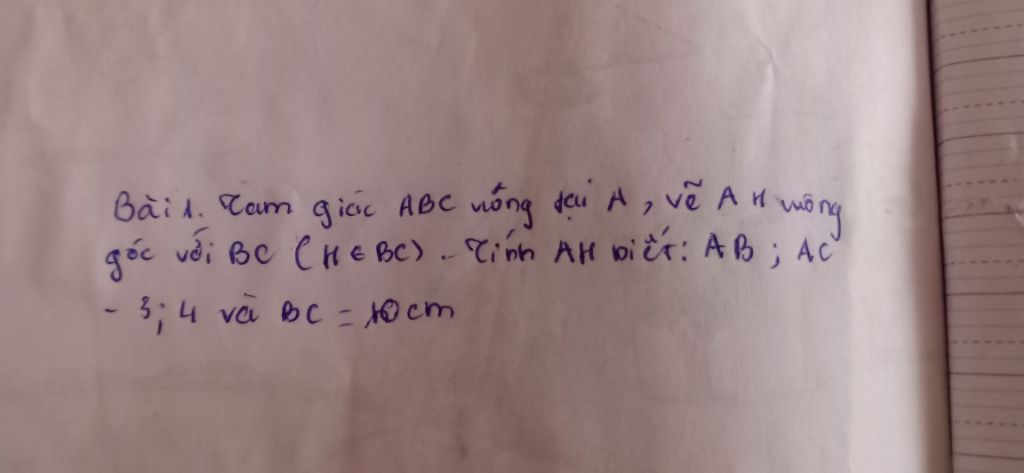 Bài 1. Tam giác ABC vuông tại A, vẽ AH vuông
góc với BC (H ∈ BC). Tính AH biết: AB; AC
- 3; 4 và BC = 10cm